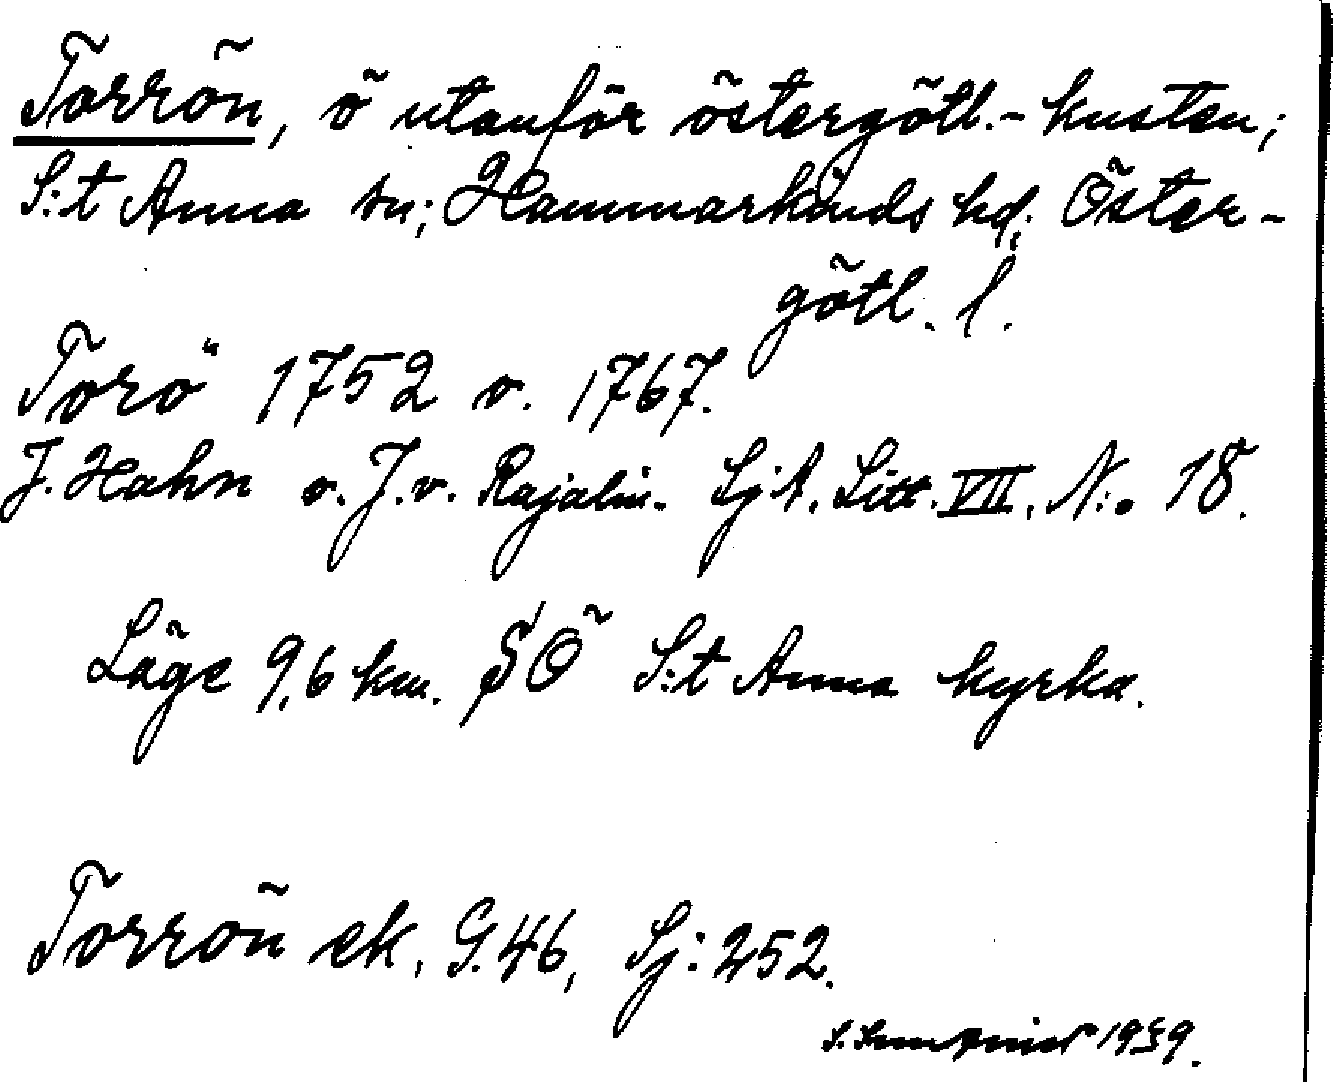 Torrön, ö utanför östergötl.-kusten;
S:t Anna sn; Hammarkinds hd; Öster-
götl. l.
Torö 1752 o. 1767.
J. Hahn o. J. v. Rajalin. SjA. Litt. VII. N:o 18.
Läge 9,6 km. SÖ S:t Anna kyrka.
Torrön ek. G.46, Sj: 252.
S. 1939.